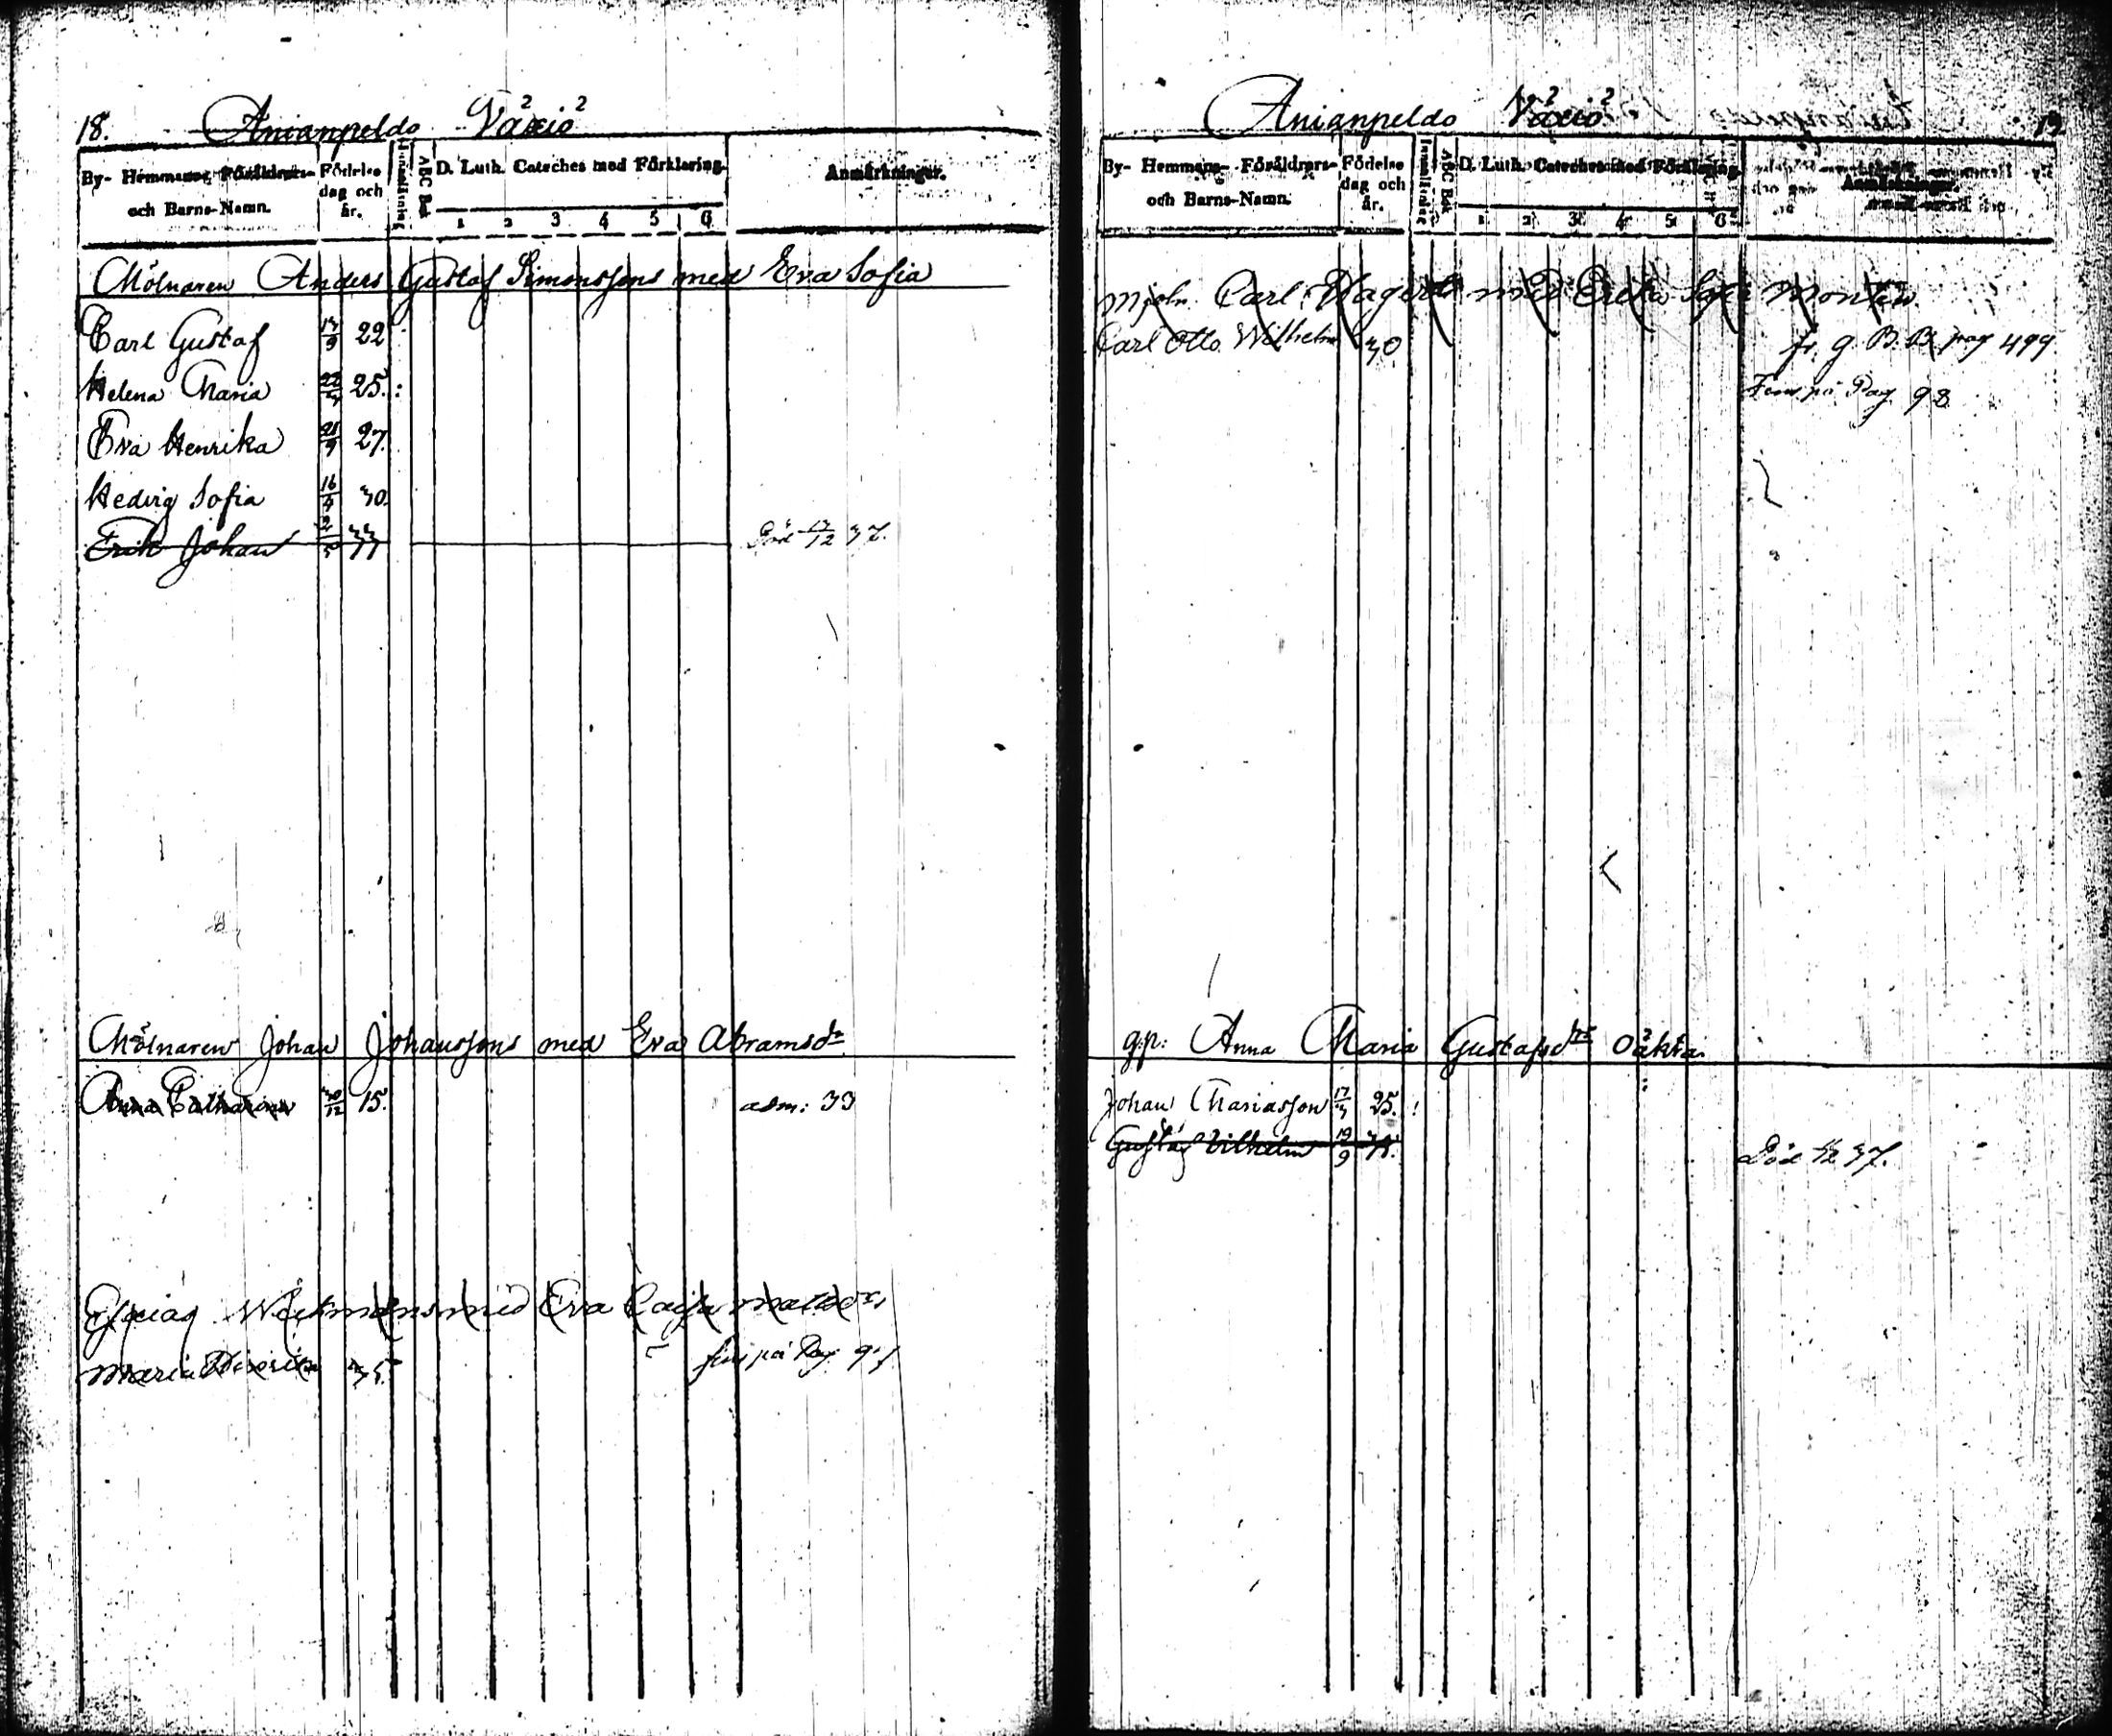 18. Anianpeldo Växiö
By- Hemmans- Föräldrars- och Barns-Namn. Födelse dag och år. Innanläsning ABC Bok D. Luth. Cateches med Förklaring. Anmärkningar.
1 2 3 4 5 6
Mölnaren Anders Gustaf Simonssons med Eva Sofia
Carl Gustaf 22
Helena Maria 25.
Eva Henrika 21/9 27.
Hedvig Sofia 30.
Erik Johan 33 Död 37.
Mölnaren Johan Johanssons med Eva Abramsdr
Anna Catharina 30/12 15. adm: 33
med Eva Cajsa
Maria 35. fins på Pag. 97
Anianpeldo Växiö 19
By- Hemmans- Föräldrars- och Barns-Namn. Födelse dag och år. Innanläsning ABC Bok D. Luth. Cateches med Förklaring. Anmärkningar.
1 2 3 4 5 6
Mjöln. Carl med Erika Sofia
Carl Otto Wilhelm 30 fr. g. B. B. pag 499
Fins på Pag. 98
gp: Anna Maria Gustafsdrs oäkta
Johan Mariasson 17/3 25.
Gustaf Vilhelm 19/9 Död 37.